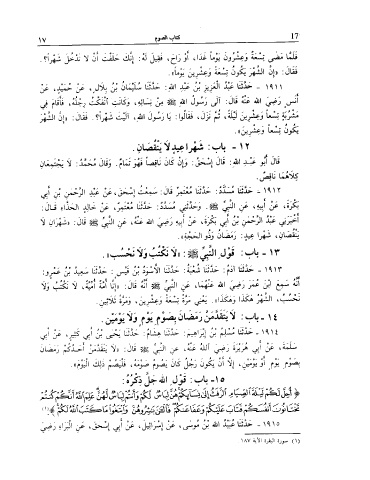 17 كتاب الصوم ١٧
فَلَمَّا مَضَى تِسْعَةٌ وَعِشْرُونَ يَوْماً غَدَا، أَوْ رَاحَ، فَقِيلَ لَهُ: إِنَّكَ حَلَفْتَ أَنْ لَا تَدْخُلَ شَهْراً؟.
فَقَالَ: «إِنَّ الشَّهْرَ يَكُونُ تِسْعَةً وَعِشْرِينَ يَوْماً».
١٩١١ - حَدَّثَنَا عَبْدُ الْعَزِيزِ بْنُ عَبْدِ اللهِ: حَدَّثَنَا سُلَيْمَانُ بْنُ بِلَالٍ، عَنْ حُمَيْدٍ، عَنْ
أَنَسٍ رَضِيَ اللهُ عَنْهُ قَالَ: آلَى رَسُولُ اللهِ ﷺ مِنْ نِسَائِهِ، وَكَانَتِ انْفَكَّتْ رِجْلُهُ، فَأَقَامَ فِي
مَشْرُبَةٍ تِسْعاً وَعِشْرِينَ لَيْلَةً، ثُمَّ نَزَلَ، فَقَالُوا: يَا رَسُولَ اللهِ، آلَيْتَ شَهْراً؟. فَقَالَ: «إِنَّ الشَّهْرَ
يَكُونُ تِسْعاً وَعِشْرِينَ».
١٢ - باب: شَهْرَا عِيدٍ لَا يَنْقُصَانِ.
قَالَ أَبُو عَبْدِ اللهِ: قَالَ إِسْحَقُ: وَإِنْ كَانَ نَاقِصاً فَهُوَ تَمَامٌ. وَقَالَ مُحَمَّدٌ: لَا يَجْتَمِعَانِ
كِلَاهُمَا نَاقِصٌ.
١٩١٢ - حَدَّثَنَا مُسَدَّدٌ: حَدَّثَنَا مُعْتَمِرٌ قَالَ: سَمِعْتُ إِسْحَقَ، عَنْ عَبْدِ الرَّحْمَنِ بْنِ أَبِي
بَكْرَةَ، عَنْ أَبِيهِ، عَنِ النَّبِيِّ ﷺ. وَحَدَّثَنِي مُسَدَّدٌ: حَدَّثَنَا مُعْتَمِرٌ، عَنْ خَالِدٍ الْحَذَّاءِ قَالَ:
أَخْبَرَنِي عَبْدُ الرَّحْمَنِ بْنُ أَبِي بَكْرَةَ، عَنْ أَبِيهِ رَضِيَ اللهُ عَنْهُ، عَنِ النَّبِيِّ ﷺ قَالَ: «شَهْرَانِ لَا
يَنْقُصَانِ، شَهْرَا عِيدٍ: رَمَضَانُ وَذُو الْحَجَّةِ».
١٣ - باب: قَوْلِ النَّبِيِّ ﷺ: «لَا نَكْتُبُ وَلَا نَحْسُبُ».
١٩١٣ - حَدَّثَنَا آدَمُ: حَدَّثَنَا شُعْبَةُ: حَدَّثَنَا الْأَسْوَدُ بْنُ قَيْسٍ: حَدَّثَنَا سَعِيدُ بْنُ عَمْرٍو:
أَنَّهُ سَمِعَ ابْنَ عُمَرَ رَضِيَ اللهُ عَنْهُمَا، عَنِ النَّبِيِّ ﷺ أَنَّهُ قَالَ: «إِنَّا أُمَّةٌ أُمِّيَّةٌ، لَا نَكْتُبُ وَلَا
نَحْسُبُ، الشَّهْرُ هَكَذَا وَهَكَذَا». يَعْنِي مَرَّةً تِسْعَةً وَعِشْرِينَ، وَمَرَّةً ثَلَاثِينَ.
١٤ - باب: لَا يَتَقَدَّمَنَّ رَمَضَانَ بِصَوْمِ يَوْمٍ وَلَا يَوْمَيْنِ.
١٩١٤ - حَدَّثَنَا مُسْلِمُ بْنُ إِبْرَاهِيمَ: حَدَّثَنَا هِشَامٌ: حَدَّثَنَا يَحْيَى بْنُ أَبِي كَثِيرٍ، عَنْ أَبِي
سَلَمَةَ، عَنْ أَبِي هُرَيْرَةَ رَضِيَ اللهُ عَنْهُ، عَنِ النَّبِيِّ ﷺ قَالَ: «لَا يَتَقَدَّمَنَّ أَحَدُكُمْ رَمَضَانَ
بِصَوْمِ يَوْمٍ أَوْ يَوْمَيْنِ، إِلَّا أَنْ يَكُونَ رَجُلٌ كَانَ يَصُومُ صَوْمَهُ، فَلْيَصُمْ ذَلِكَ الْيَوْمَ».
١٥- باب: قَوْلِ اللهِ جَلَّ ذِكْرُهُ:
﴿أُحِلَّ لَكُمْ لَيْلَةَ الصِّيَامِ الرَّفَثُ إِلَى نِسَائِكُمْ هُنَّ لِبَاسٌ لَكُمْ وَأَنْتُمْ لِبَاسٌ لَهُنَّ عَلِمَ اللهُ أَنَّكُمْ كُنْتُمْ
تَخْتَانُونَ أَنْفُسَكُمْ فَتَابَ عَلَيْكُمْ وَعَفَا عَنْكُمْ فَالْآنَ بَاشِرُوهُنَّ وَابْتَغُوا مَا كَتَبَ اللهُ لَكُمْ﴾(١)
١٩١٥ - حَدَّثَنَا عُبَيْدُ اللهِ بْنُ مُوسَى، عَنْ إِسْرَائِيلَ، عَنْ أَبِي إِسْحَقَ، عَنِ الْبَرَاءِ رَضِيَ
(١) سورة البقرة الآية ١٨٧